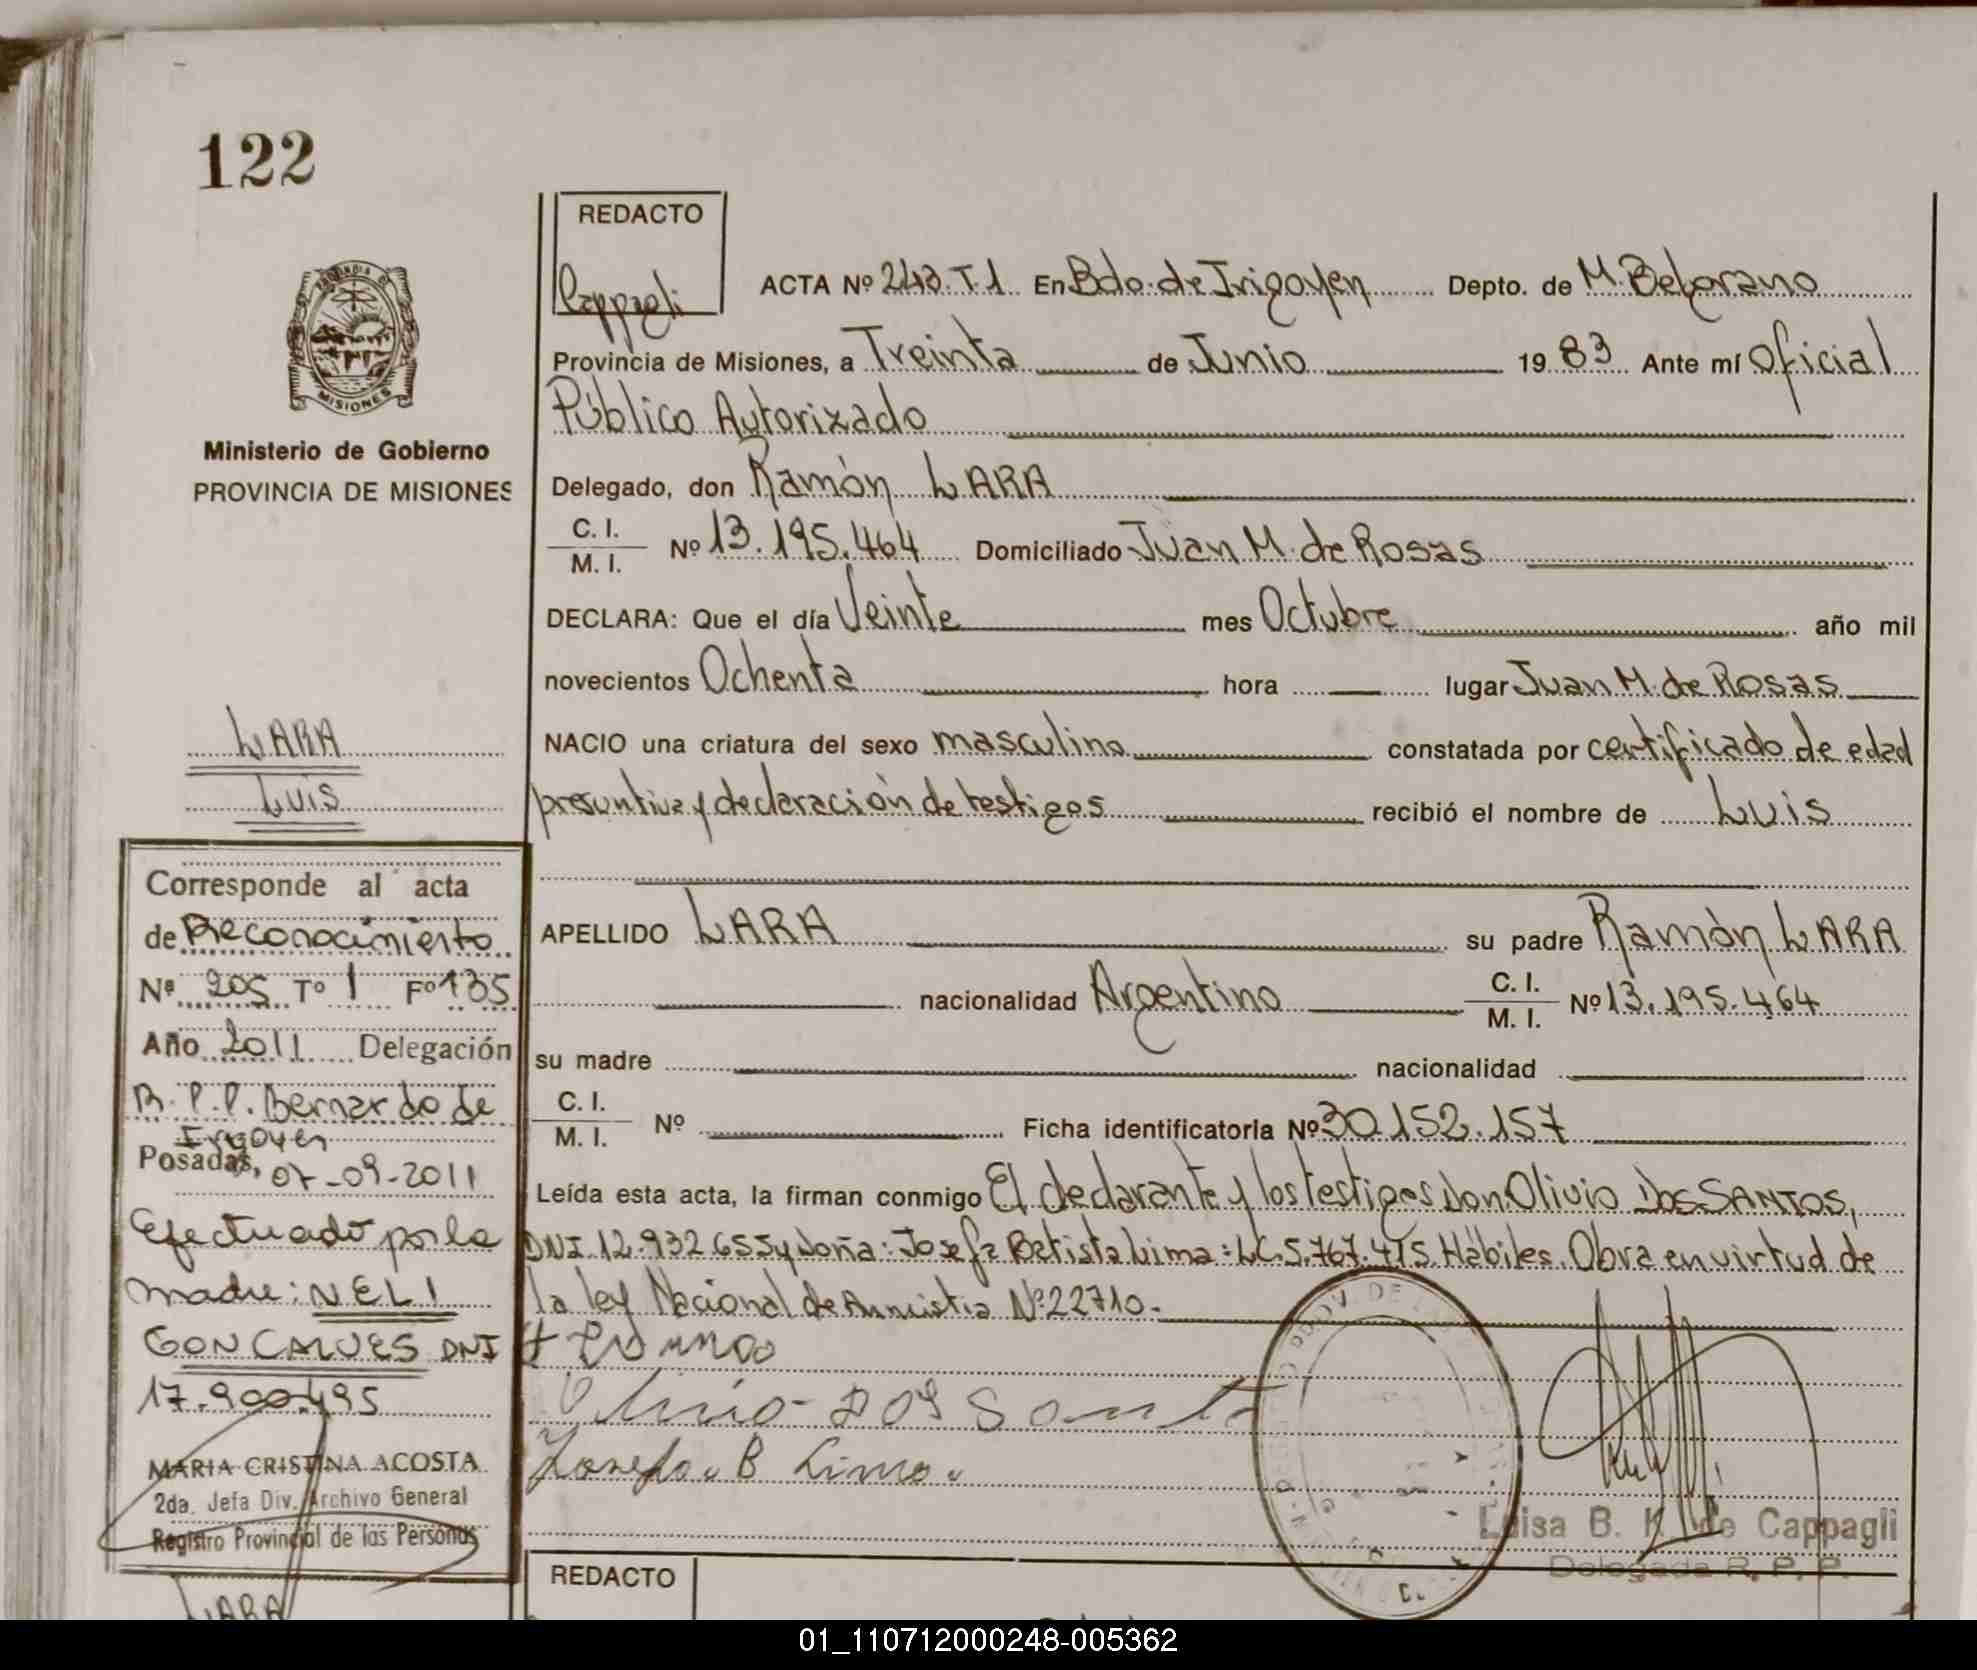 122
REDACTO
Cappagli
ACTA Nº 243 T1 En Bdo. de Irigoyen Depto. de M. Belgrano
Provincia de Misiones, a Treinta de Junio 1983 Ante mí Oficial
Público Autorizado
MISIONES
Ministerio de Gobierno
PROVINCIA DE MISIONES
Delegado, don Ramón LARA
C. I.
M. I. Nº 13.195.464 Domiciliado Juan M. de Rosas
DECLARA: Que el día Veinte mes Octubre año mil
novecientos Ochenta hora lugar Juan M. de Rosas
NACIO una criatura del sexo masculino constatada por certificado de edad
presuntiva y declaración de testigos recibió el nombre de Luis
APELLIDO LARA su padre Ramón LARA
nacionalidad Argentino C. I. M. I. Nº 13.195.464
su madre nacionalidad
C. I.
M. I. Nº Ficha identificatoria Nº 30.152.157
Leída esta acta, la firman conmigo El declarante y los testigos don Olivio DOS SANTOS,
DNI 12.932.655 y doña: Josefa Batista Lima: LC. 5.767.415. Hábiles. Obra en virtud de
la ley Nacional de Amnistia Nº 22710.-
Olivio Dos Sant
Josefa B Lima
Luisa B. K. de Cappagli
Delegada R. P. P.
LARA
Luis
Corresponde al acta
de Reconocimiento
Nº 205 Tº 1 Fº 135
Año 2011 Delegación
R.P.P. Bernardo de
Irigoyen
Posadas, 07-09-2011
Efectuado por la
madre: NELI
GONCALVES DNI
17.900.495
MARIA CRISTINA ACOSTA
2da. Jefa Div. Archivo General
Registro Provincial de las Personas
LARA
REDACTO
01_110712000248-005362